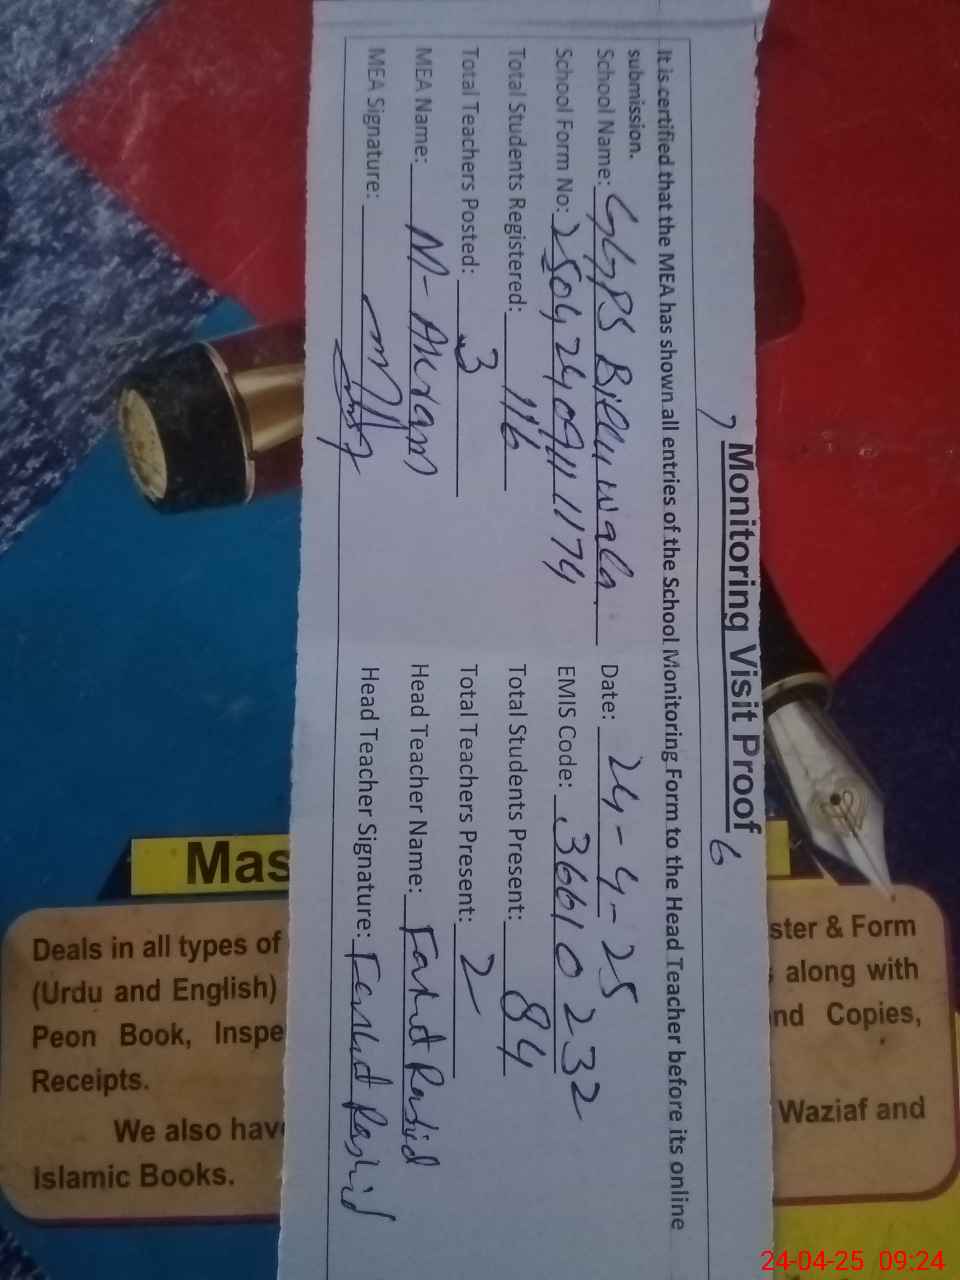 7 Monitoring Visit Proof 6
It is certified that the MEA has shown all entries of the School Monitoring Form to the Head Teacher before its online
submission.
School Name: GGPS Billuwala Date: 24-4-25
School Form No: 250424091174 EMIS Code: 36610232
Total Students Registered: 116 Total Students Present: 84
Total Teachers Posted: 3 Total Teachers Present: 2
MEA Name: M-Akram Head Teacher Name: Rashid
MEA Signature: Head Teacher Signature: Rashid
Mas
Deals in all types of
(Urdu and English)
Peon Book, Inspe
Receipts.
We also hav
Islamic Books.
ster & Form
along with
nd Copies,
Waziaf and
24-04-25 09:24